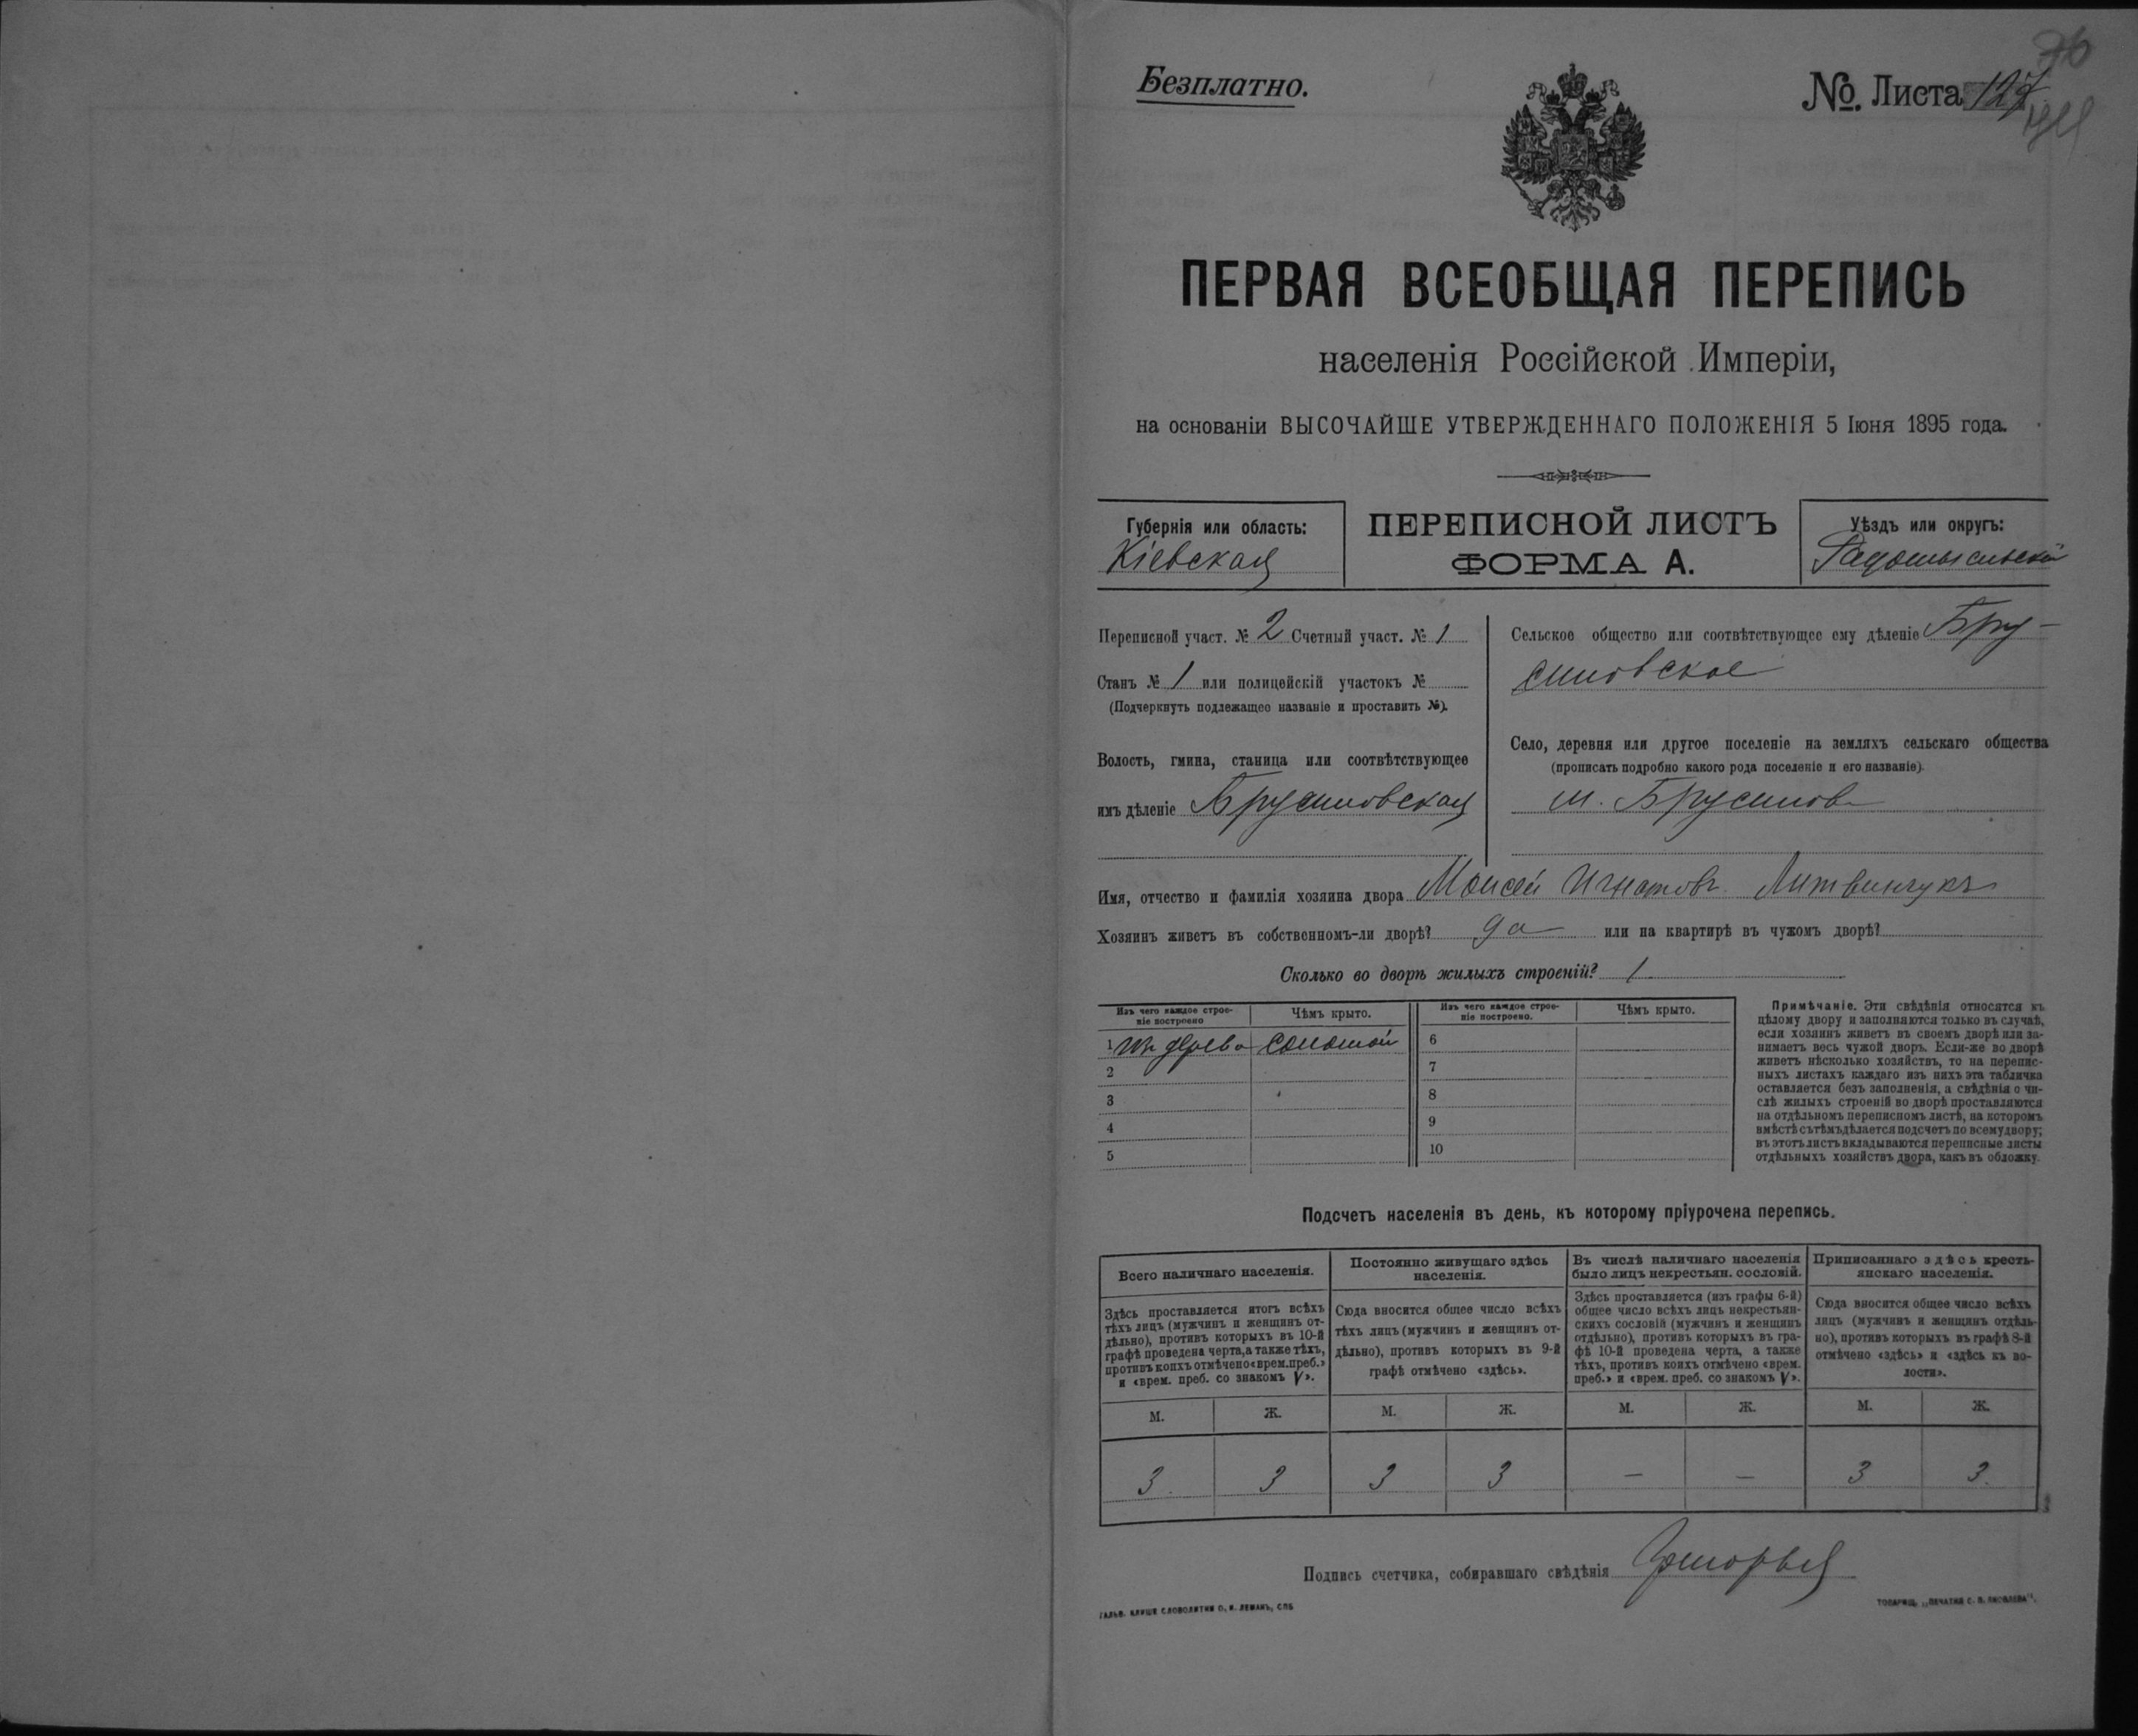 Безплатно.
№ Листа 127
ПЕРВАЯ ВСЕОБЩАЯ ПЕРЕПИСЬ
населенія Россійской Имперіи,
на основаніи ВЫСОЧАЙШЕ УТВЕРЖДЕННАГО ПОЛОЖЕНІЯ 5 Іюня 1895 года.
Губернія или область:
Кіевская
ПЕРЕПИСНОЙ ЛИСТЪ
ФОРМА А.
Уѣздъ или округъ:
Радомысльскій
Переписной участ. № 2 Счетный участ. № 1
Станъ № 1 или полицейскій участокъ №
(Подчеркнуть подлежащее названіе и проставить №).
Волость, гмина, станица или соотвѣтствующее
имъ дѣленіе Брусиловская
Сельское общество или соотвѣтствующее ему дѣленіе Бру-
силовское
Село, деревня или другое поселеніе на земляхъ сельскаго общества
(прописать подробно какого рода поселеніе и его названіе).
м. Брусиловъ
Имя, отчество и фамилія хозяина двора Моисей Игнатовъ Литвинчукъ
Хозяинъ живетъ въ собственномъ-ли дворѣ? да или на квартирѣ въ чужомъ дворѣ?
Сколько во дворѣ жилыхъ строеній? 1
Изъ чего каждое строе-
ніе построено
Чѣмъ крыто.
Изъ чего каждое строе-
ніе построено.
Чѣмъ крыто.
1 изъ дерева соломой
2
3
4
5
6
7
8
9
10
Примѣчаніе. Эти свѣдѣнія относятся къ
цѣлому двору и заполняются только въ случаѣ,
если хозяинъ живетъ въ своемъ дворѣ или за-
нимаетъ весь чужой дворъ. Если-же во дворѣ
живетъ нѣсколько хозяйствъ, то на перепис-
ныхъ листахъ каждаго изъ нихъ эта табличка
оставляется безъ заполненія, а свѣдѣнія о чи-
слѣ жилыхъ строеній во дворѣ проставляются
на отдѣльномъ переписномъ листѣ, на которомъ
вмѣстѣ съ тѣмъ дѣлается подсчетъ по всему двору;
въ этотъ листъ вкладываются переписные листы
отдѣльныхъ хозяйствъ двора, какъ въ обложку.
Подсчетъ населенія въ день, къ которому пріурочена перепись.
Всего наличнаго населенія.
Здѣсь проставляется итогъ всѣхъ
тѣхъ лицъ (мужчинъ и женщинъ от-
дѣльно), противъ которыхъ въ 10-й
графѣ проведена черта, а также тѣхъ,
противъ коихъ отмѣчено «врем. преб.»
и «врем. преб. со знакомъ V».
Постоянно живущаго здѣсь
населенія.
Сюда вносится общее число всѣхъ
тѣхъ лицъ (мужчинъ и женщинъ от-
дѣльно), противъ которыхъ въ 9-й
графѣ отмѣчено «здѣсь».
Въ числѣ наличнаго населенія
было лицъ некрестьян. сословій.
Здѣсь проставляется (изъ графы 6-й)
общее число всѣхъ лицъ некрестьян-
скихъ сословій (мужчинъ и женщинъ
отдѣльно), противъ которыхъ въ гра-
фѣ 10-й проведена черта, а также
тѣхъ, противъ коихъ отмѣчено «врем.
преб.» и «врем. преб. со знакомъ V».
Приписаннаго здѣсь кресть-
янскаго населенія.
Сюда вносится общее число всѣхъ
лицъ (мужчинъ и женщинъ отдѣль-
но), противъ которыхъ въ графѣ 8-й
отмѣчено «здѣсь» и «здѣсь къ во-
лости».
М. Ж. М. Ж. М. Ж. М. Ж.
3. 3 3 3 — — 3 3.
Подпись счетчика, собиравшаго свѣдѣнія
ГАЛЬВ. КЛИШЕ СЛОВОЛИТНИ О. И. ЛЕМАНЪ, СПБ
ТОВАРИЩ. „ПЕЧАТНЯ С. П. ЯКОВЛЕВА".